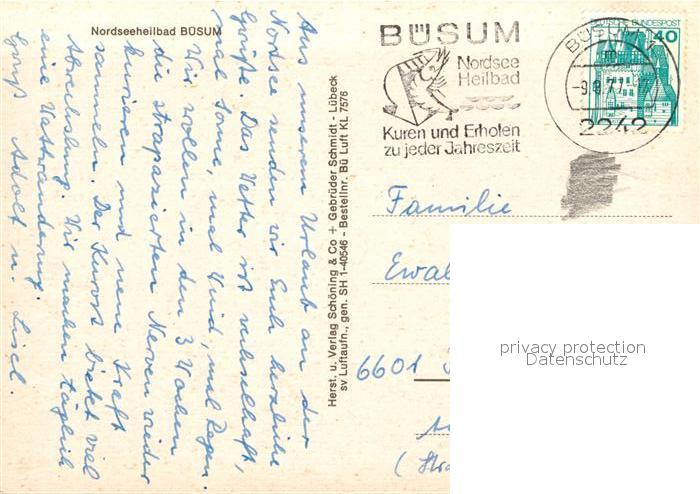 Nordseeheilbad BÜSUM
Aus unserem Urlaub an der
Nordsee senden wir Euch herzliche
Grüße. Das Wetter ist wechselhaft,
mal Sonne, mal Wind, mal Regen.
Wir wollen in den 3 Wochen
die strapazierten Nerven wieder
kurieren und neue Kraft
sammeln. Der Kurort bietet viel
Abwechslung. Wir machen täglich
eine Wattwanderung.
Gruß Adolf u. Lisel.
Herst. u. Verlag Schöning & Co + Gebrüder Schmidt - Lübeck
sv Luftaufn., gen. SH 1-40546 - Bestellnr. Bü Luft KL 7576
BÜSUM
Nordsee
Heilbad
Kuren und Erholen
zu jeder Jahreszeit
BÜSUM 1
m
2242
DEUTSCHE BUNDESPOST
40
Familie
Ewal
6601
(
privacy protection
Datenschutz